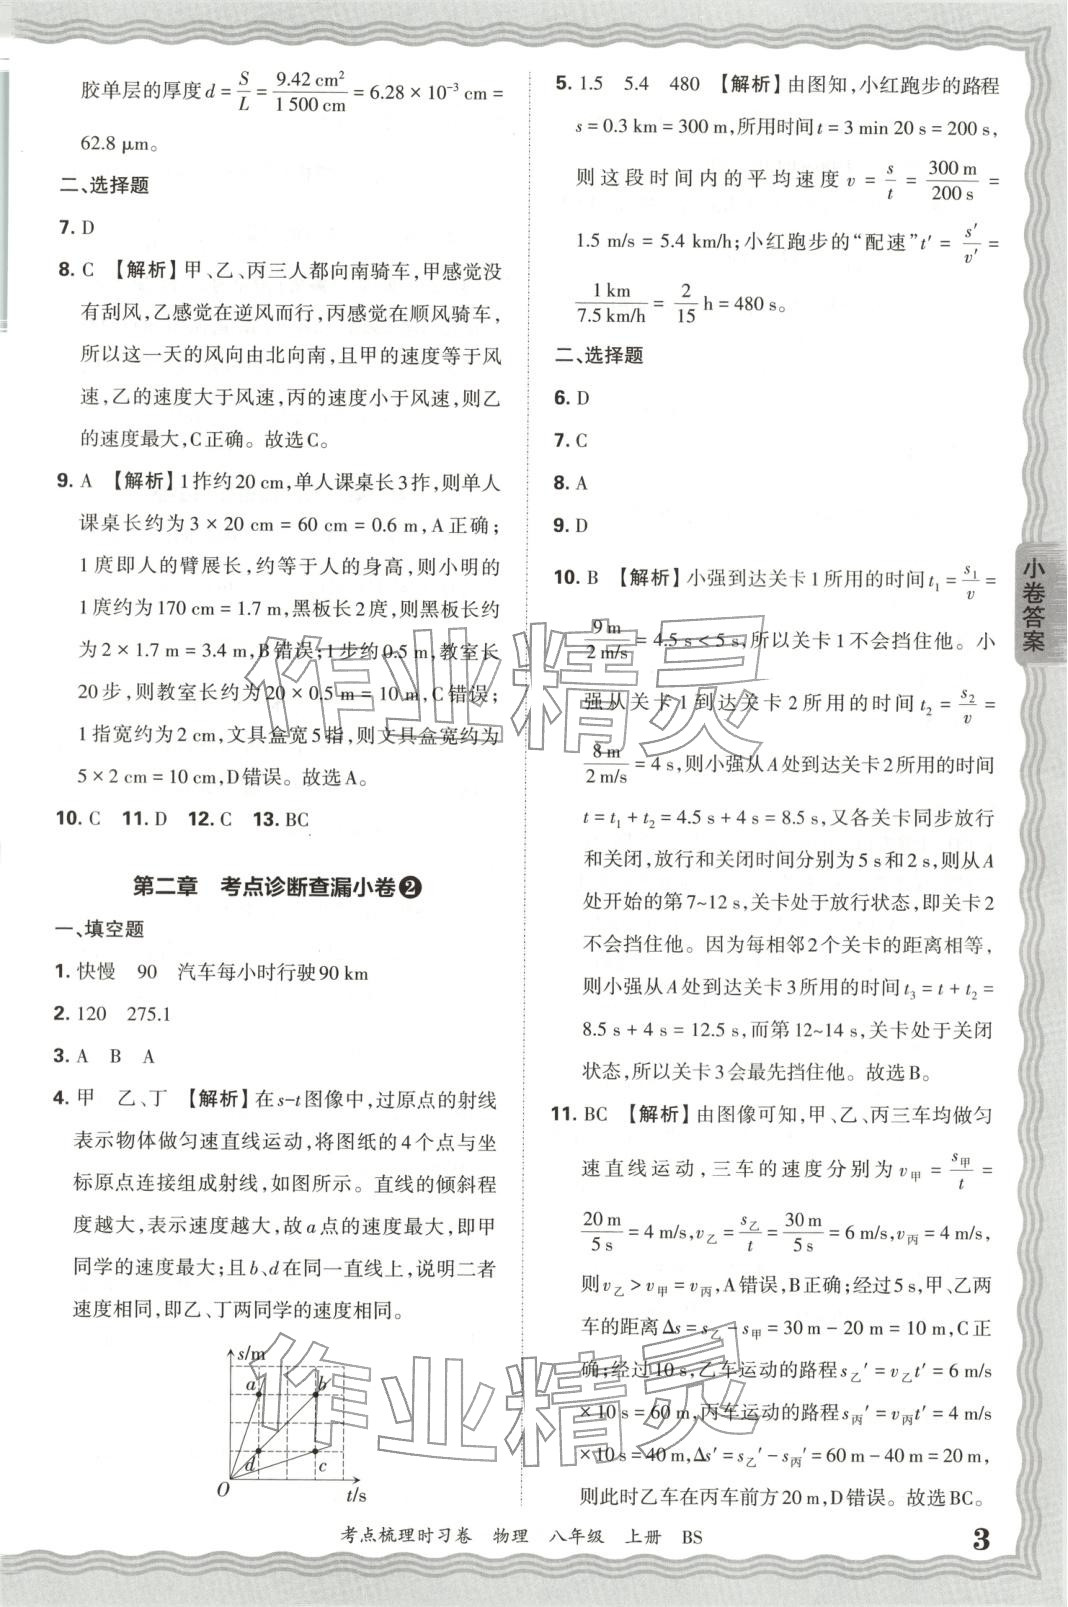 胶单层的厚度 d = S/L = 9.42 cm²/1 500 cm = 6.28 × 10⁻³ cm =
62.8 μm。
二、选择题
7. D
8. C 【解析】甲、乙、丙三人都向南骑车,甲感觉没
有刮风,乙感觉在逆风而行,丙感觉在顺风骑车,
所以这一天的风向由北向南,且甲的速度等于风
速,乙的速度大于风速,丙的速度小于风速,则乙
的速度最大,C正确。故选C。
9. A 【解析】1拃约20 cm,单人课桌长3拃,则单人
课桌长约为 3 × 20 cm = 60 cm = 0.6 m,A正确;
1庹即人的臂展长,约等于人的身高,则小明的
1庹约为170 cm = 1.7 m,黑板长2庹,则黑板长约
为2 × 1.7 m = 3.4 m,B错误;1步约0.5 m,教室长
20步,则教室长约为20 × 0.5 m = 10 m,C错误;
1指宽约为2 cm,文具盒宽5指,则文具盒宽约为
5 × 2 cm = 10 cm,D错误。故选A。
10. C 11. D 12. C 13. BC
第二章 考点诊断查漏小卷❷
一、填空题
1. 快慢 90 汽车每小时行驶90 km
2. 120 275.1
3. A B A
4. 甲 乙、丁 【解析】在s-t图像中,过原点的射线
表示物体做匀速直线运动,将图纸的4个点与坐
标原点连接组成射线,如图所示。直线的倾斜程
度越大,表示速度越大,故a点的速度最大,即甲
同学的速度最大;且b、d在同一直线上,说明二者
速度相同,即乙、丁两同学的速度相同。
s/m
a b
d c
O t/s
5. 1.5 5.4 480 【解析】由图知,小红跑步的路程
s = 0.3 km = 300 m,所用时间t = 3 min 20 s = 200 s,
则这段时间内的平均速度 v = s/t = 300 m/200 s =
1.5 m/s = 5.4 km/h;小红跑步的“配速”t′ = s′/v′ =
1 km/7.5 km/h = 2/15 h = 480 s。
二、选择题
6. D
7. C
8. A
9. D
10. B 【解析】小强到达关卡1所用的时间t₁ = s₁/v =
9 m/2 m/s = 4.5 s < 5 s,所以关卡1不会挡住他。小
强从关卡1到达关卡2所用的时间 t₂ = s₂/v =
8 m/2 m/s = 4 s,则小强从A处到达关卡2所用的时间
t = t₁ + t₂ = 4.5 s + 4 s = 8.5 s,又各关卡同步放行
和关闭,放行和关闭时间分别为5 s和2 s,则从A
处开始的第7~12 s,关卡处于放行状态,即关卡2
不会挡住他。因为每相邻2个关卡的距离相等,
则小强从A处到达关卡3所用的时间t₃ = t + t₂ =
8.5 s + 4 s = 12.5 s,而第12~14 s,关卡处于关闭
状态,所以关卡3会最先挡住他。故选B。
11. BC 【解析】由图像可知,甲、乙、丙三车均做匀
速直线运动,三车的速度分别为 v甲 = s甲/t =
20 m/5 s = 4 m/s,v乙 = s乙/t = 30 m/5 s = 6 m/s,v丙 = 4 m/s,
则v乙 > v甲 = v丙,A错误,B正确;经过5 s,甲、乙两
车的距离Δs = s乙 - s甲 = 30 m - 20 m = 10 m,C正
确;经过10 s,乙车运动的路程s乙′ = v乙t′ = 6 m/s
× 10 s = 60 m,丙车运动的路程s丙′ = v丙t′ = 4 m/s
× 10 s = 40 m,Δs′ = s乙′ - s丙′ = 60 m - 40 m = 20 m,
则此时乙车在丙车前方20 m,D错误。故选BC。
小卷答案
作业精灵
作业精灵
考点梳理时习卷 物理 八年级 上册 BS
3